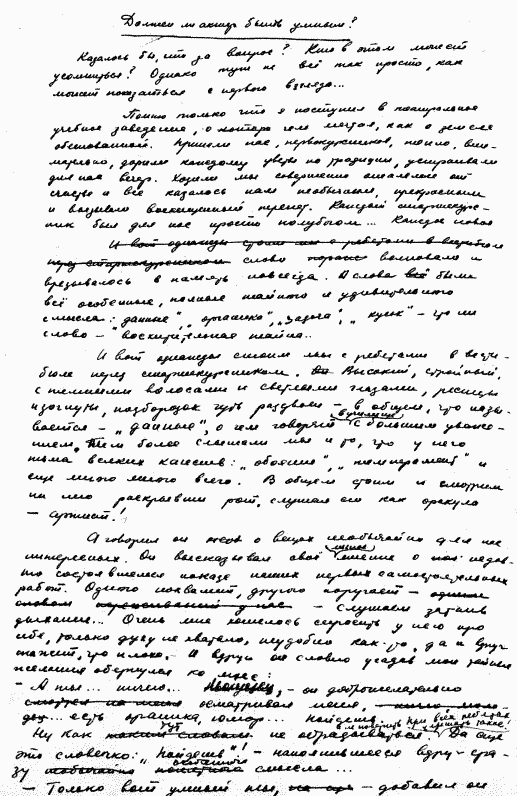 Должен ли актер быть умным?
Казалось бы, что за вопрос? Кто в этом может
усомниться? Однако тут не всё так просто, как
может показаться с первого взгляда...
Помню только что я поступил в театральное
учебное заведение, о котором мечтал, как о земле
обетованной. Приняли нас, первокурсников, тепло, вни-
мательно, дарили каждому цветы по традиции, устраивали
для нас вечер. Ходили мы совершенно ошалелые от
счастья и всё казалось нам необычным, прекрасным
и вызывало восхищенный трепет. Каждый старшекурс-
ник был для нас просто полубогом... Каждое новое
И вот однажды стоим мы с ребятами в вестибюле
перед старшекурсником слово волновало и
врезывалось в память навсегда. А слова всё были
всё особенные, полные тайного и удивительного
смысла: „данные", „органика", „задача", „кусок" – что ни
слово – восхитительная тайна..
И вот однажды стоим мы с ребятами в вести-
бюле перед старшекурсником. Высокий, стройный,
с темными волосами и светлыми глазами, ресницы
изогнуты, подбородок чуть раздвоен – в общем, что назы-
вается – „данные", о чем говорят с большим уваже-
нием. Тем более слышали мы и то, что у него
тьма всяких качеств: „обаяние", „темперамент" и
еще много много всего. В общем стоим и смотрим
на него раскрывши рот, слушая его как оракула
– артист!
А говорил он о вещах необычайно для нас
интересных. Он высказывал своё мнение о нед-
но состоявшемся показе наших первых самостоятельных
работ. Одного похвалит, другого поругает –
– слушаем затаив
дыхание... Очень мне хотелось спросить у него про
себя, только духу не хватало, неудобно как-то, да и вдруг
скажет, что плохо. И вдруг он словно угадав мои тайные
желания обернулся ко мне:
– А ты... ничего... – он доброжелательно
осматривал меня,
есть органика, юмор... Пойдешь
Ну как тут не обрадоваться Да еще
это словечко: „Пойдешь"! – наполнившееся вдруг сра-
зу смысла...
– Только вот умный ты, – добавил он